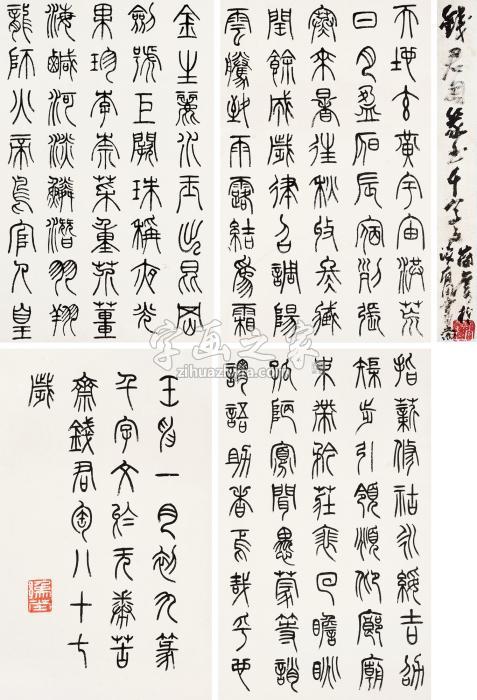 錢君匋篆書千字文
天地玄黃宇宙洪荒
日月盈昃辰宿列張
寒來暑往秋收冬藏
閏餘成歲律呂調陽
雲騰致雨露結為霜
金生麗水玉出崑岡
劍號巨闕珠稱夜光
果珍李柰菜重芥薑
海鹹河淡鱗潛羽翔
龍師火帝鳥官人皇
指薪修祜永綏吉劭
矩步引領俯仰廊廟
束帶矜莊徘徊瞻眺
孤陋寡聞愚蒙等誚
謂語助者焉哉乎也
壬申一月初九篆
千字文於无倦苦
齋錢君匋八十七
歲
字画之家